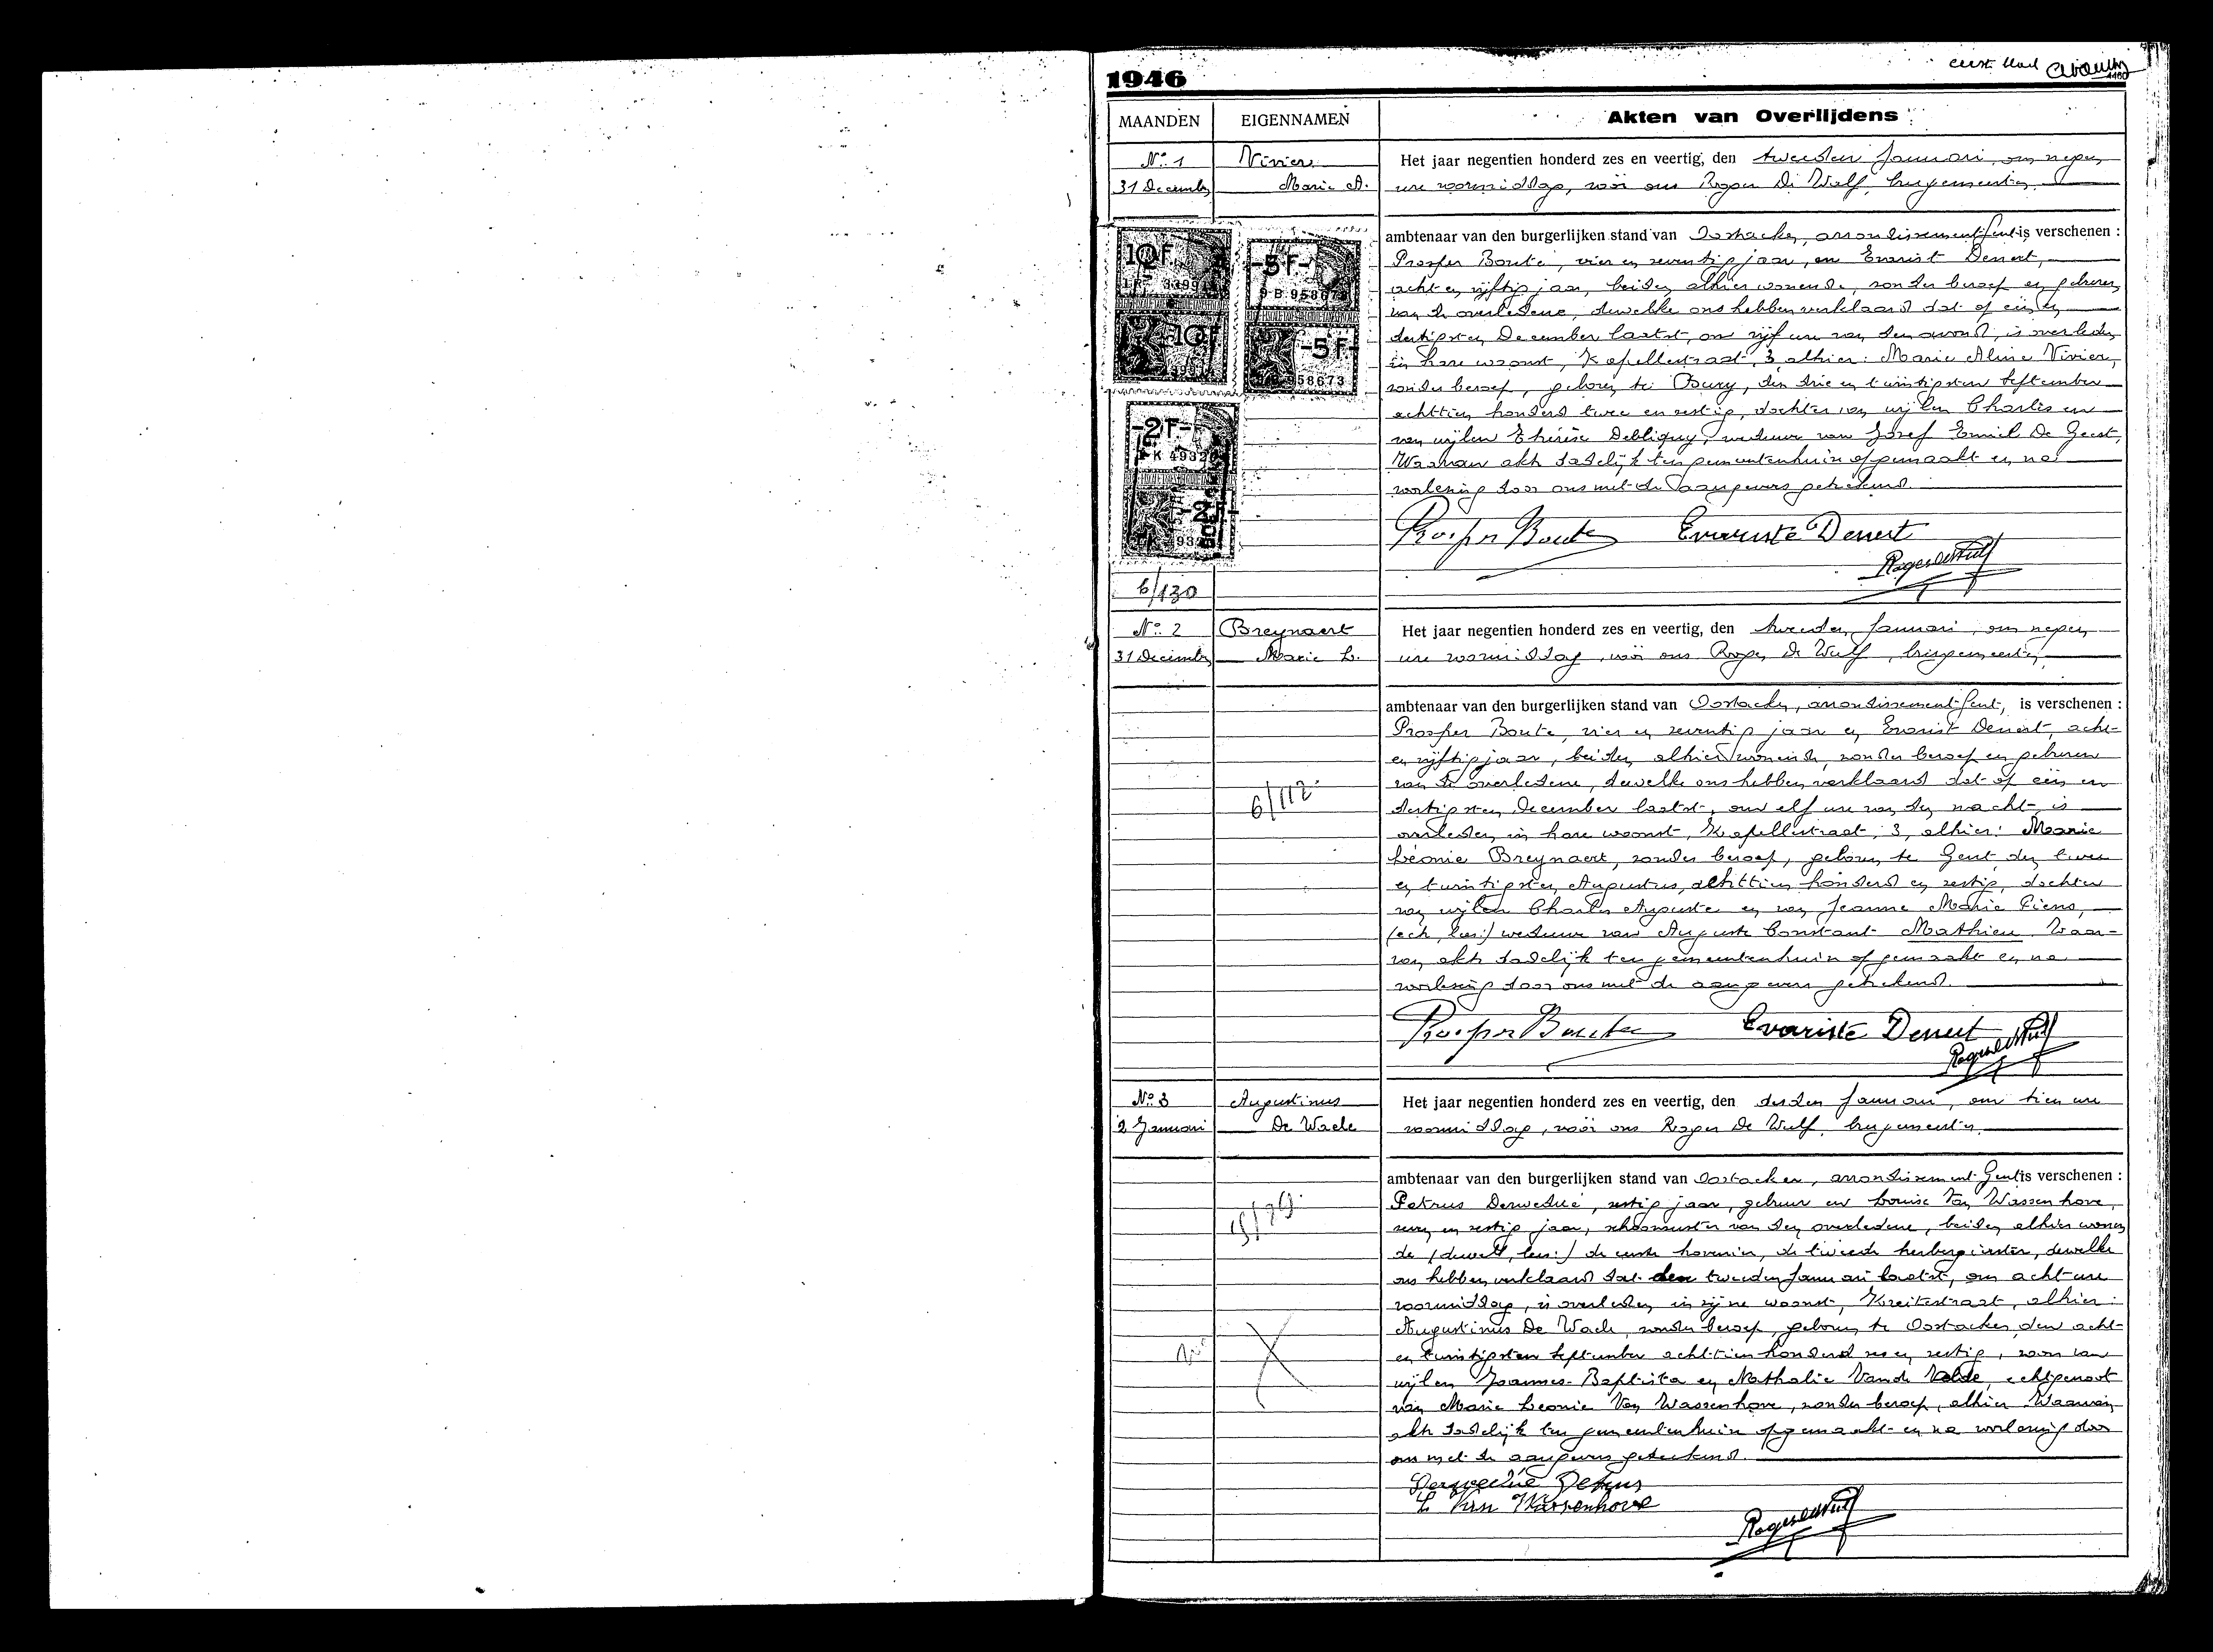 eerste blad
1946
MAANDEN
EIGENNAMEN
Akten van Overlijdens
No. 1
Vivier
31 December
Marie A.
Het jaar negentien honderd zes en veertig, den tweeden Januari, om negen
ure voormiddag, vóór ons Roger De Wulf, burgemeester,
ambtenaar van den burgerlijken stand van Oostacker, arrondissement Gent is verschenen :
Prosper Boute, vier en seventig jaar, en Evarist Denert,
acht en vijftig jaar, beiden alhier wonende, zonder beroep en geburen
van de overledene, dewelke ons hebben verklaard dat op één en
dertigsten December laatst, om vijf ure van den avond, is overleden
in hare woonst, Kapellestraat 3, alhier: Marie Aline Vivier,
zonder beroep, geboren te Bury, den drie en twintigsten September
achttien honderd twee en zestig, dochter van wijlen Charles en
van wijlen Thérèse Debliquy, weduwe van Jozef Emiel De Geest,
Waarvan akte dadelijk ten gemeentenhuize opgemaakt en na
voorlezing door ons met de aangevers geteekend.
10F
-5F-
9 B 958673
10F
-5F-
958673
-2F-
-2F-
Prosper Boute Evariste Denert
Roger De Wulf
6/130
No. 2
Breynaert
31 December
Marie L.
Het jaar negentien honderd zes en veertig, den tweeden Januari, om negen
ure voormiddag, vóór ons Roger De Wulf, burgemeester,
ambtenaar van den burgerlijken stand van Oostacker, arrondissement Gent, is verschenen :
Prosper Boute, vier en seventig jaar en Evarist Denert, acht
en vijftig jaar, beiden alhier wonende, zonder beroep en geburen
van de overledene, dewelke ons hebben verklaard dat op één en
dertigsten December laatst, om elf ure van den nacht, is
overleden in hare woonst, Kapellestraat, 3, alhier: Marie
Léonie Breynaert, zonder beroep, geboren te Gent den twee
en twintigsten Augustus, achttien honderd en zestig, dochter
van wijlen Charles Auguste en van Jeanne Marie Fiens,
(ech, lees:) weduwe van Auguste Constant Mathieu. Waar-
van akte dadelijk ten gemeentenhuize opgemaakt en na
voorlezing door ons met de aangevers geteekend.
6/112
Prosper Boute Evariste Denert
Roger De Wulf
No. 3
Augustinus
2 Januari
De Waele
Het jaar negentien honderd zes en veertig, den derden Januari, om tien ure
voormiddag, vóór ons Roger De Wulf, burgemeester,
ambtenaar van den burgerlijken stand van Oostacker, arrondissement Gent is verschenen :
Petrus Derweduë, zestig jaar, gebuur en Louise Van Wassenhove,
seven en zestig jaar, schoonzuster van den overledene, beiden alhier wonen
de (dewelk, lees:) de eerste hovenier, de tweede herbergierster, dewelke
ons hebben verklaard dat den tweeden Januari laatst, om acht ure
voormiddag, is overleden in zijne woonst, Kreitestraat, alhier:
Augustinus De Waele, zonder beroep, geboren te Oostacker, den acht
en twintigsten September achttien honderd zes en zestig, zoon van
wijlen Joannes-Baptista en Nathalie Vande Velde, echtgenoot
van Marie Leonie Van Wassenhove, zonder beroep, alhier. Waarvan
akte dadelijk ten gemeentenhuize opgemaakt en na voorlezing door
ons met de aangevers geteekend.
Derweduë Petrus
L Van Wassenhove
Roger De Wulf